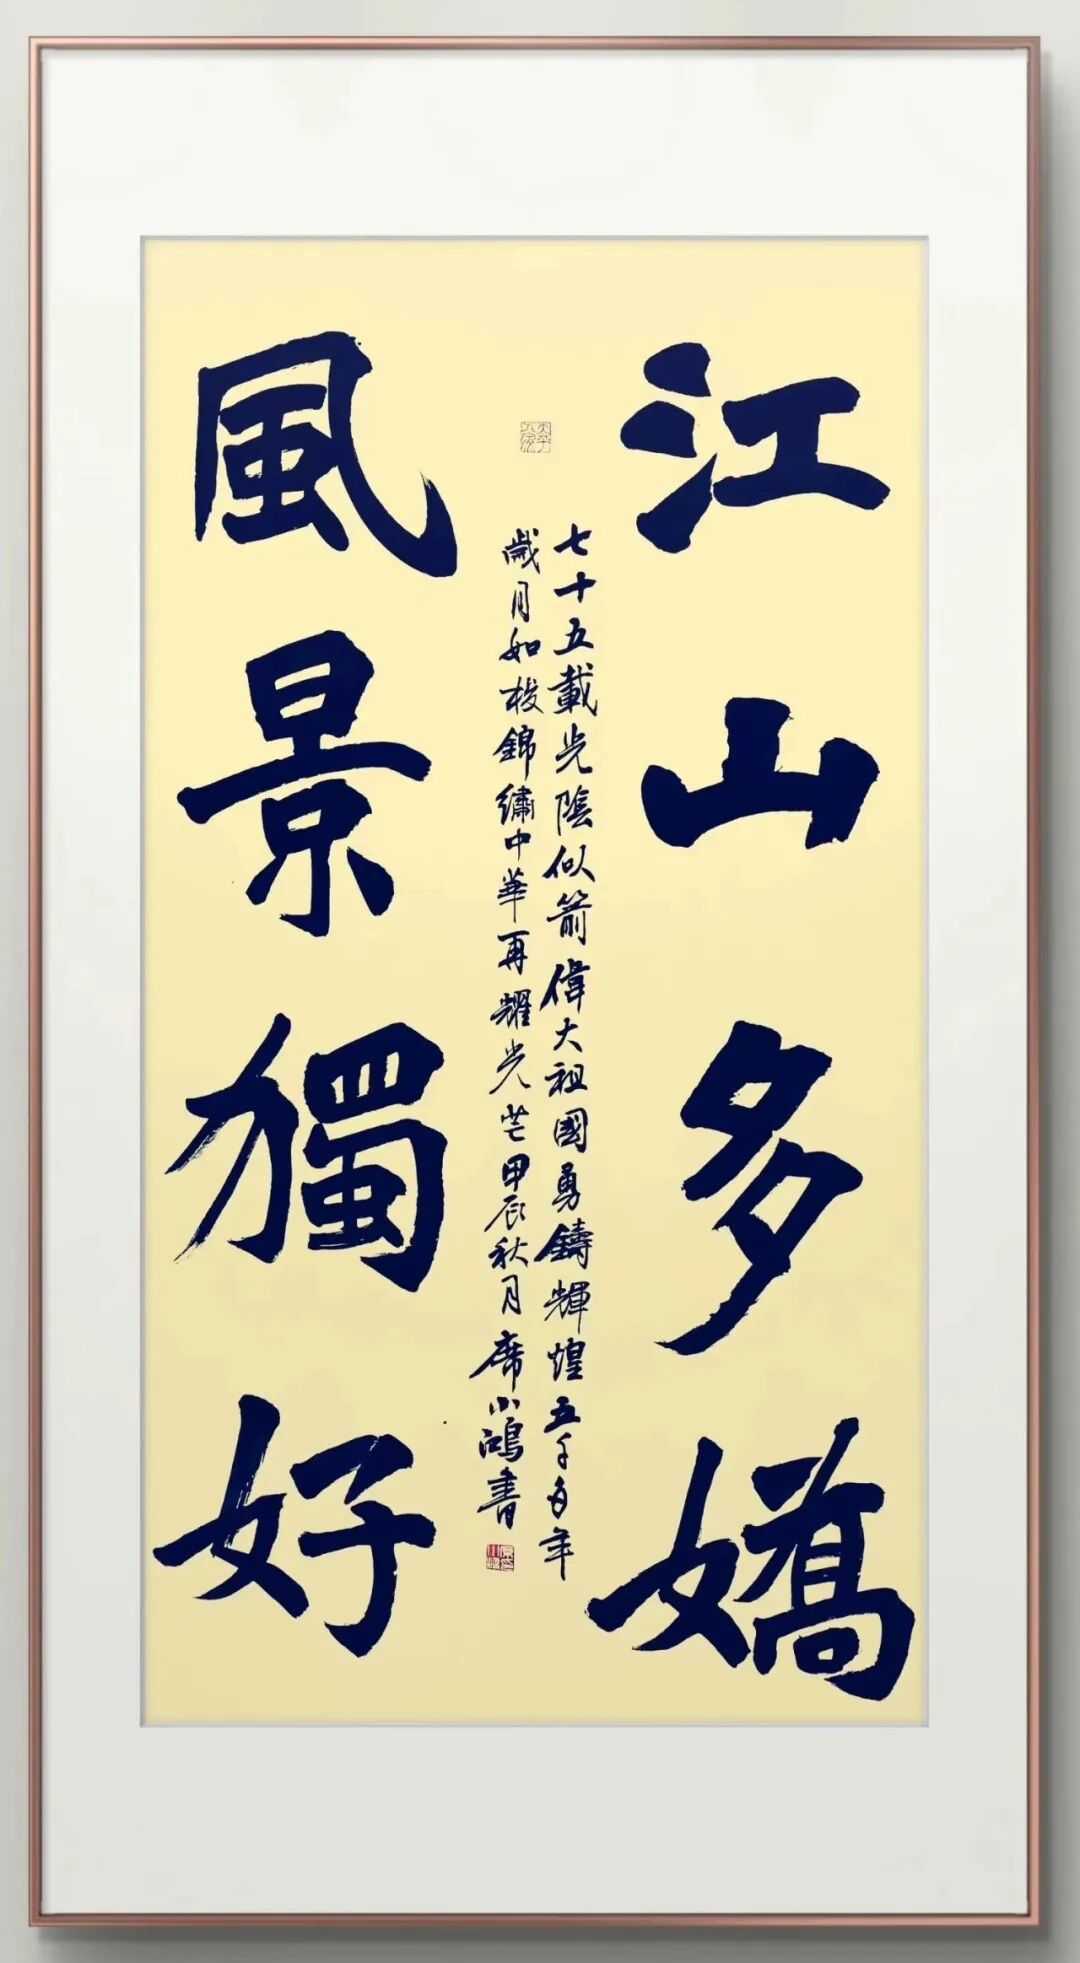 江山多嬌
風景獨好
七十五載光陰似箭偉大祖國勇鑄輝煌五千多年
歲月如梭錦繡中華再耀光芒甲辰秋月席小鴻書